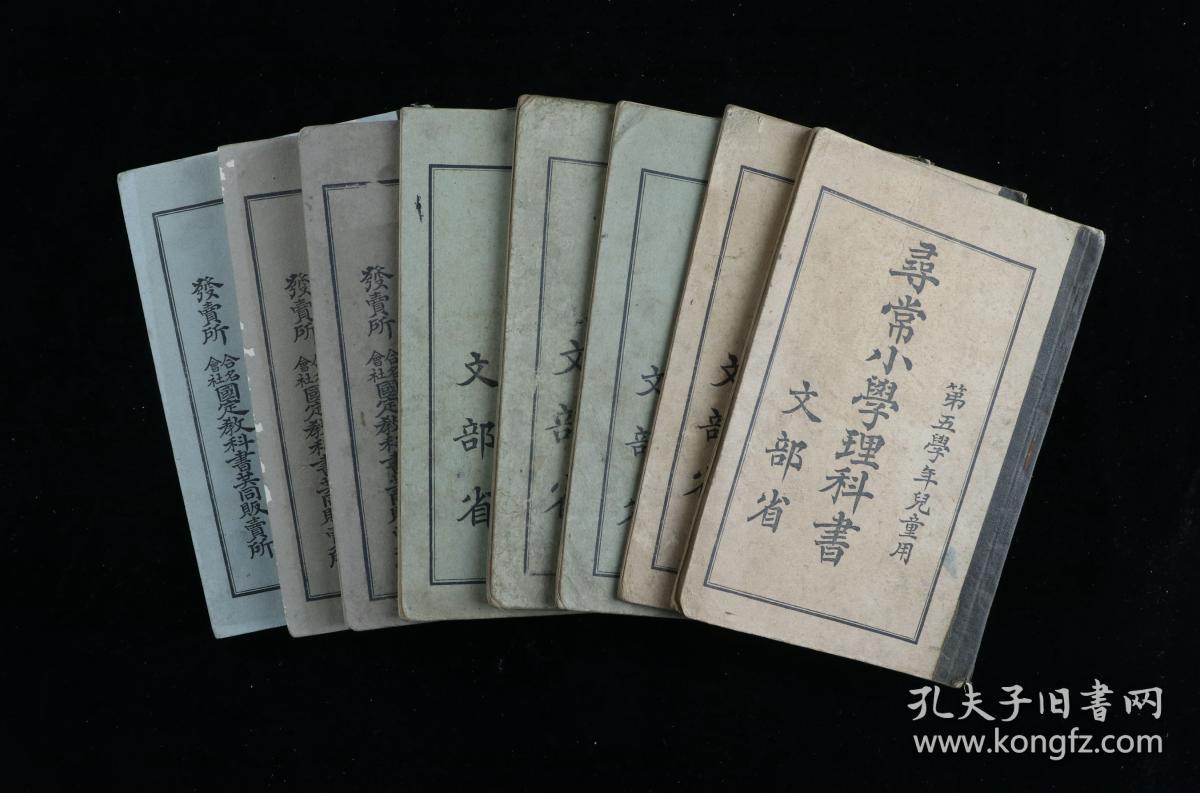 第五學年兒童用
尋常小學理科書
文部省
文部
文部省
文部省
文部省
發賣所
合名會社
國定教科書共同販賣所
發賣所
國定教科
發賣所
國定教科書共同販賣所
孔夫子旧书网
www.kongfz.com